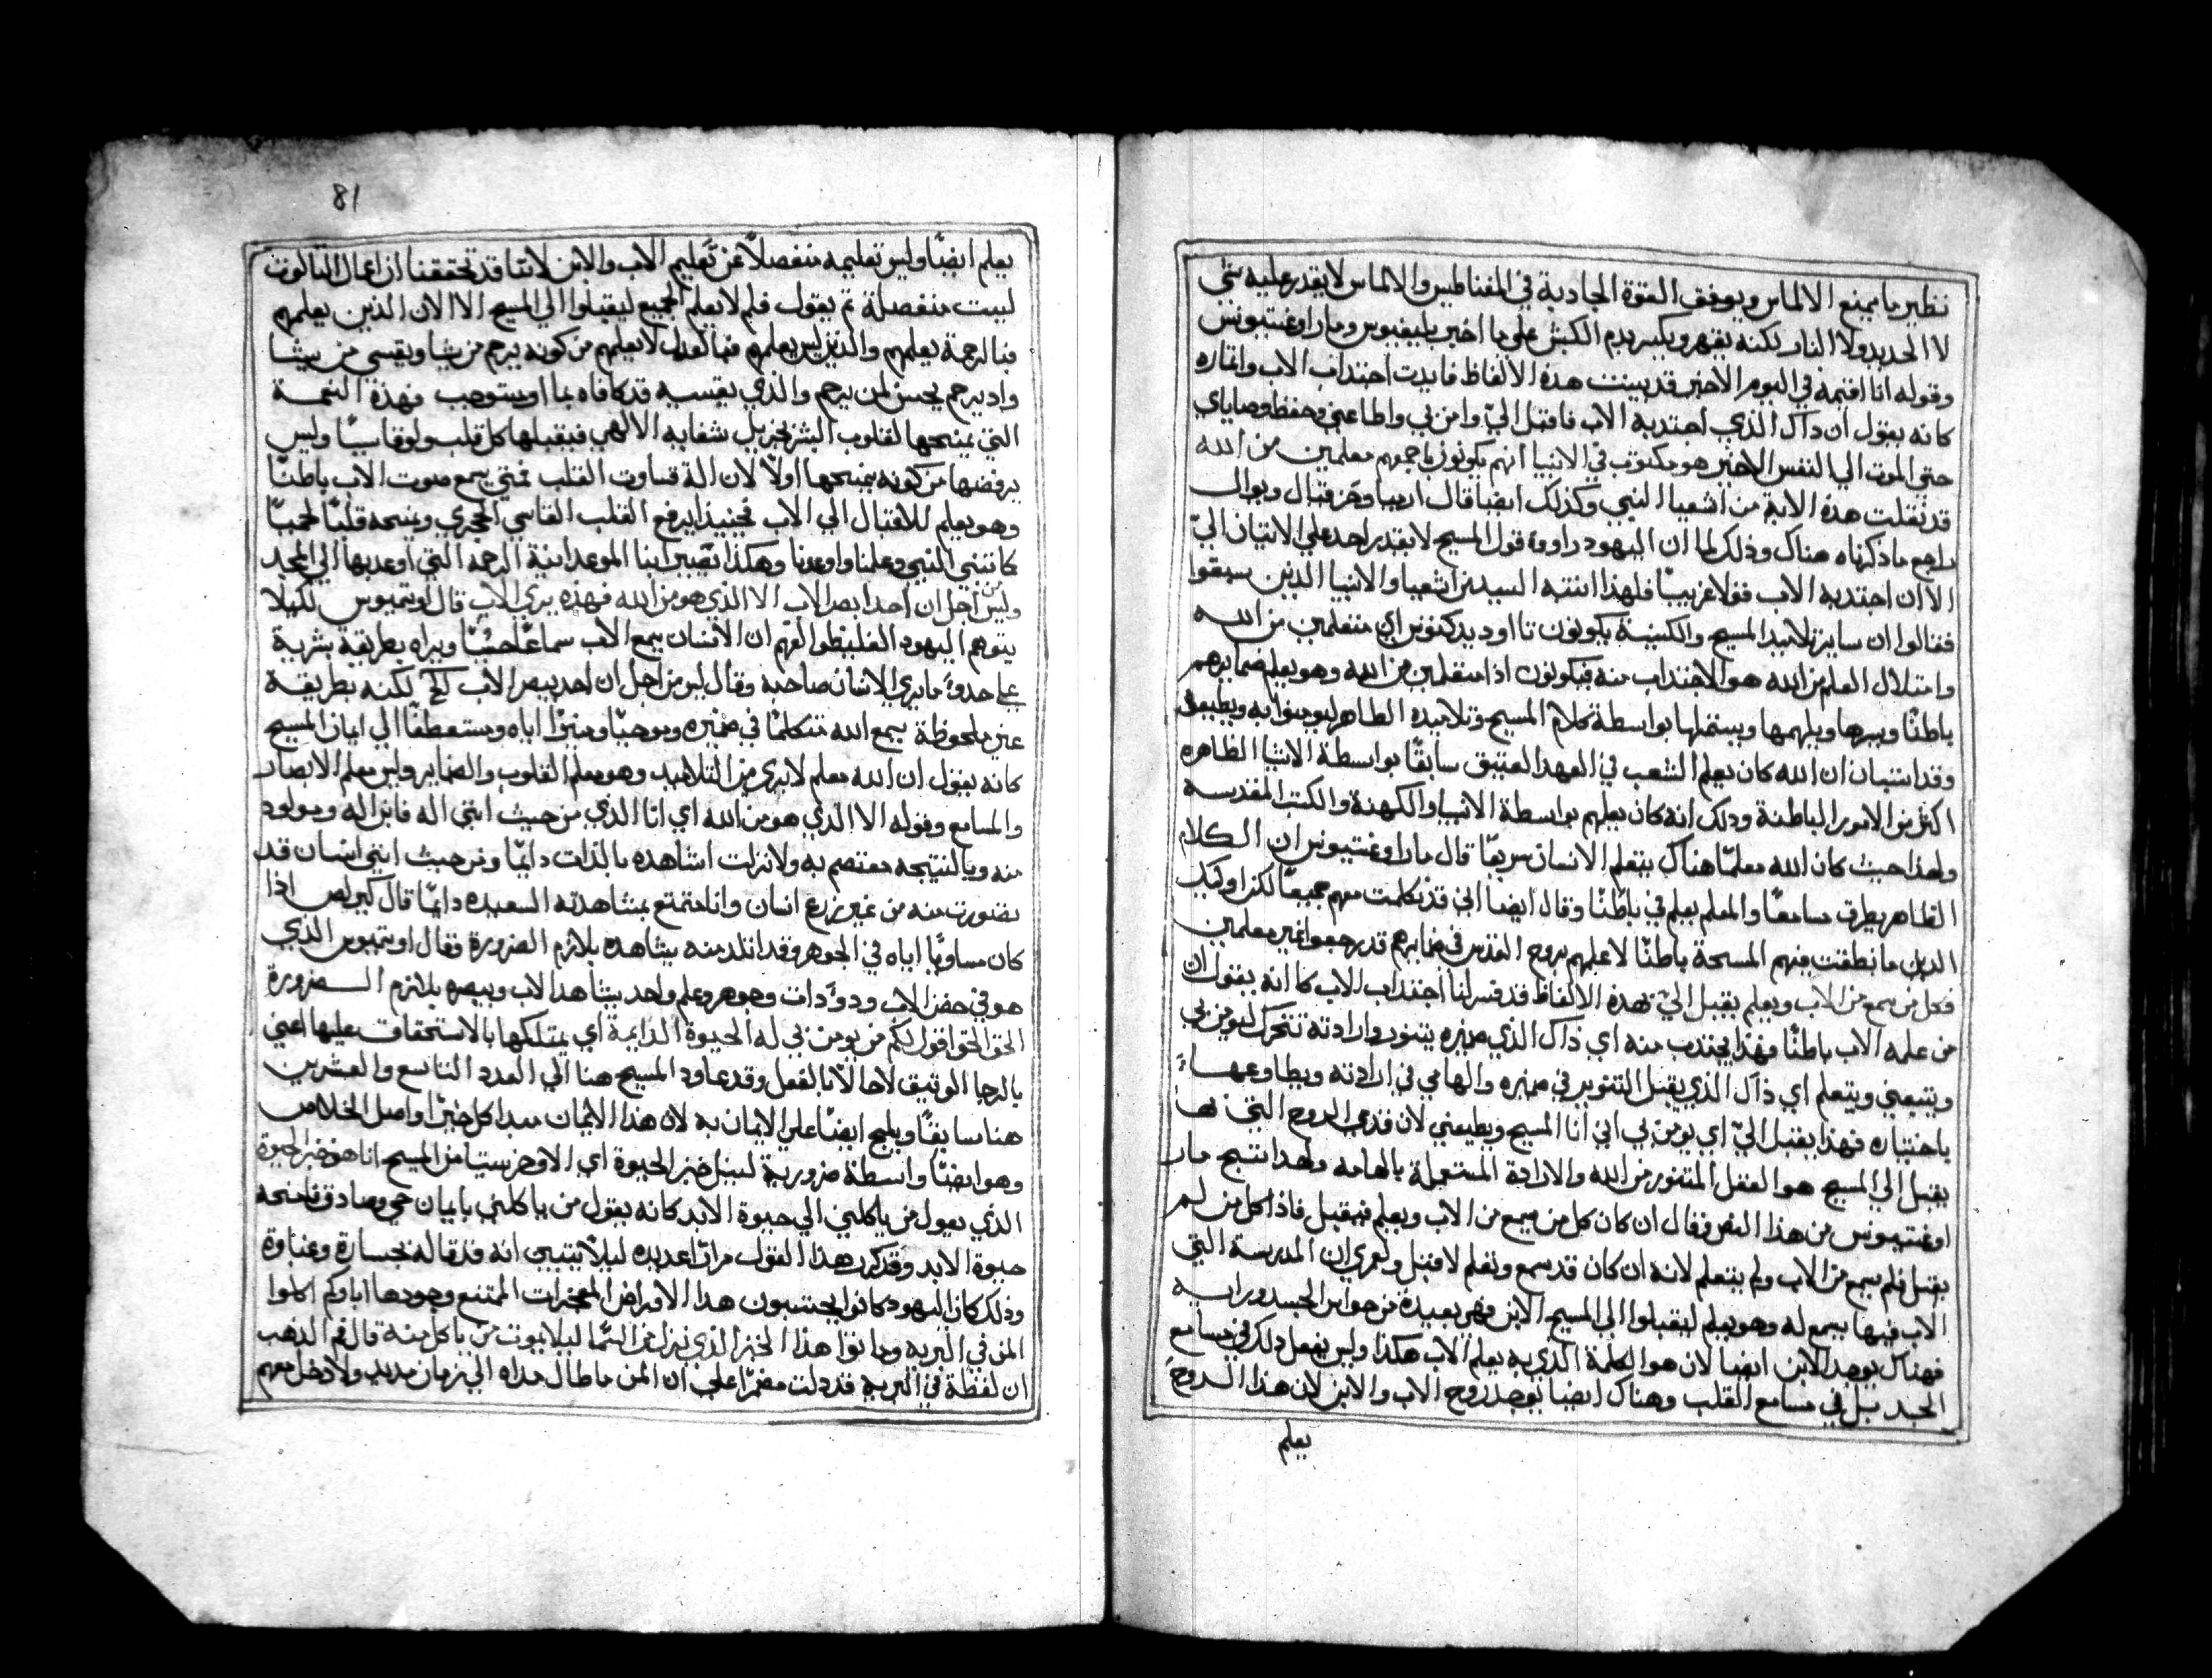 نظير ما يمنع الالماس ويوقف القوة الجادبة في المغناطيس والالماس لا يقدر عليه شي
لا الحديد ولا النار لكنه يقهر ويكسر بدم الكبش على ما اخبر بلينيوس ومار اوغستينوس
وقوله انا اقيمه في اليوم الاخير قد بينت هذه الالفاظ فايدت اجتداب الاب واثماره
كانه يقول ان داك الذي اجتدبه الاب فاقبل اليّ وامن بي واطاعني وحفظ وصاياي
حتى الموت الي النفس الاخير هو مكتوب في الانبيا انهم يكونون باجمعهم معلمين من الله
قد نقلت هذه الاية من اشعيا النبي وكذلك ايضا قال ارميا وحزقيال ويوال
راجع ما ذكرناه هناك وذلك لما ان اليهود راوا قول المسيح لا يقدر احد علي الاتيان اليّ
الا ان اجتدبه الاب قولا غريبا فلهذا انتبه السيد من اشعيا والانبيا الذين سبقوا
فقالوا ان ساير تلاميد المسيح والكنيسة يكونون تاوديدكتوس اي متعلمين من الله
وامتلال العلم من الله هو الاجتداب منه فيكونون اذا متعلمين من الله وهو يعلم ضمايرهم
باطنًا ويبرها ويلهمها ويستملها بواسطة كلام المسيح وتلاميده الظاهر ليومنوا به ويطيعوه
وقد استبان ان الله كان يعلم الشعب في العهد العتيق سابقًا بواسطة الاشيا الظاهره
اكثر من الامور الباطنة ودلك انه كان يعلهم بواسطة الانبيا والكهنة والكتب المقدسه
ولهذا حيث كان الله معلمًا هناك يتعلم الانسان سريعًا قال مار اوغستينوس ان الكلام
الظاهر يطرق مسامعنا والمعلم يعلم في باطنا وقال ايضا اني قد تكلمت معهم جميعًا لكن اوليك
الدين ما نطقت فيهم المسحة باطنًا لا علمهم بروح القدس في ضمايرهم قد رجعوا غير معلمين
فكل من سمع من الاب ويعلم يقبل اليّ فهذه الالفاظ قد فسر لنا اجتداب الاب كما انه يقول ان
من علمه الاب باطنًا فهذا يجتدب منه اي ذاك الذي ضميره يتنور وارادته تتحرك ليومن بي
ويتبعني ويتعلم اي ذاك الذي يقبل التنوير في ضميره والهامي في ارادته ويطاوعها
باختياره فهذا يقبل اليّ اي يومن بي اني انا المسيح ويطيعني لان قدمي الروح التي بها
يقبل الي المسيح هو العقل المتنور من الله والارادة المستعملة بالهامه ولهدا ينتج مار
اوغستينوس من هذا النص فقال ان كان كل من سمع من الاب ويعلم فيقبل فاذا كل من لم
يقبل فلم يسمع من الاب ولم يتعلم لانه ان كان قد سمع وتعلم لاقبل ولعمري ان المدرسة التي
الاب فيها يسمع له وهو يعلم ليقبلوا الى المسيح الابن فهي بعيدة من حواس الجسد وراسه
فهناك يوجد الابن ايضا لان هو الكلمة الذي به يعلم الاب هكذا وليس يفعل دلك في مسامع
الجسد بل في مسامع القلب وهناك ايضا يوجد روح الاب والابن لان هذا الروح
يعلم
81
يعلم ايضًا وليس تعليمه منفصلاً عن تعليم الاب والابن لاننا قد تحققنا ان اعمال التالوت
ليست منفصلة ثم يقول فلم لا يعلم الجميع ليقبلوا الي المسيح الا الان الذين يعلمهم
فبالرحمة يعلمهم والذين ليس يعلمهم فبالعدل لا يعلمهم من كونه يرحم من يشا ويقسي من يشا
واد يرحم يحسن لمن يرحم والذي يقسيه قد كافاه بما استوجب فهذة النعمة
التي يمنحها لقلوب البشر بجزيل شفايه الالهي فيقبلها كل قلب ولو قاسيًا وليس
يرفضها من كونه يمنحها اولاً لازالة قساوت القلب فمتي سمع صوت الاب باطنًا
وهو يعلم للاقبال الي الاب فحينيذ يرفع القلب القاسي الحجري ويمنحه قلبًا لحميًا
كما تنبى النبي وعلمنا واوعدنا وهكذا تصير ابنا الموعد انية الرحمة التي اوعد بها الي المجد
وليس من اجل ان احدا بصر الاب الا الذي هو من الله فهذه يري الاب قال اوتيميوس لكيلا
يتوهم اليهود الغليظوا الفهم ان الانسان يسمع الاب سماعًا حسيًا ويراه بطريقة بشرية
على حدو ما يري الانسان صاحبه وقال ليس من اجل ان احد يبصر الاب لكنه بطريقة
غير ملحوظة يسمع الله متكلمًا في ضميره وموحيًا ومنيرًا اياه ومستعطفًا الي ايمان المسيح
كانه يقول ان الله معلم لا يري من التلاميد وهو معلم القلوب والضماير وليس معلم الابصار
والمسامع وقوله الا الذي هو من الله اي انا الذي من حيث انني اله فابن اله ومولود
منه وبالنتيجه معتصم به ولا زلت اشاهده بالذات دايمًا ومن حيث انني انسان قد
تصورت منه من غير زرع انسان وانا متمتع بمشاهدته السعيده دايمًا قال كيرلص اذا
كان مساويًا اياه في الجوهر وقد اتلد منه يشاهده بلازم الضرورة فقال اوتيميوس الذي
هو في حضن الاب ودو دات وجوهر وعلم واحد يشاهد الاب ويبصره بلازم الضرورة
الحق الحق اقول لكم من يومن بي له الحيوة الدايمة اي يمتلكها بالاستحقاق عليها اعني
بالرجا الوثيق لاحالاً بالفعل وقد عاود المسيح هنا الي العدد التاسع والعشرين
هنا سابقًا ويلج ايضًا على الايمان به لان هذا الايمان مبدا كل خير واصل الخلاص
وهو ايضًا واسطة ضرورية لنيل خبز الحيوة اي الافخرستيا من المسيح انا هو خبز الحيوة
الذي يقول من ياكلني الي حيوة الابد كانه يقول من ياكلني بايمان حي وصادق فامنحه
حيوة الابد وقد كرر هذا القول مرارًا عديده ليلا يتبين انه قد قاله بخسارة وغباوة
وذلك كان اليهود كانوا يحتسبون هدا الاقراض المعجزات الممتنع وجودها اباوكم اكلوا
المن في البريه وماتوا هذا الخبز الذي نزل من السما ليلا يموت من ياكل منه قال فم الذهب
ان لفظة في البرية قد دلت مضمرًا على ان المن ما طال مداه الي زمان مديد ولا دخل معهم